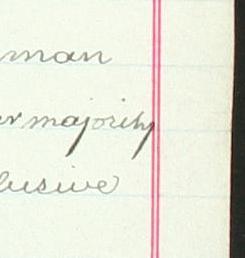 man
er majority
lusive